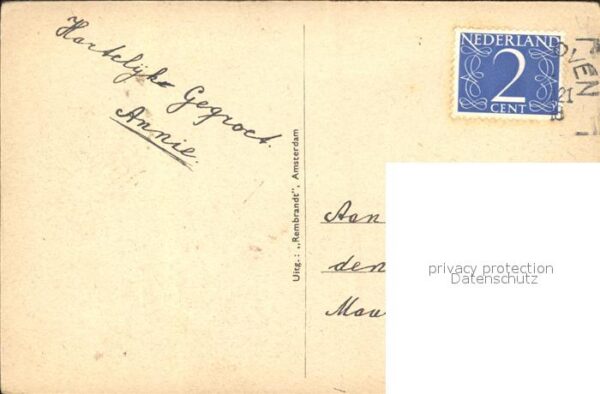 Hartelijke Gegroet.
Annie.
NEDERLAND
2
CENT
OVEN
21
Uitg.: „Rembrandt", Amsterdam
Aan
den
Mau
privacy protection
Datenschutz